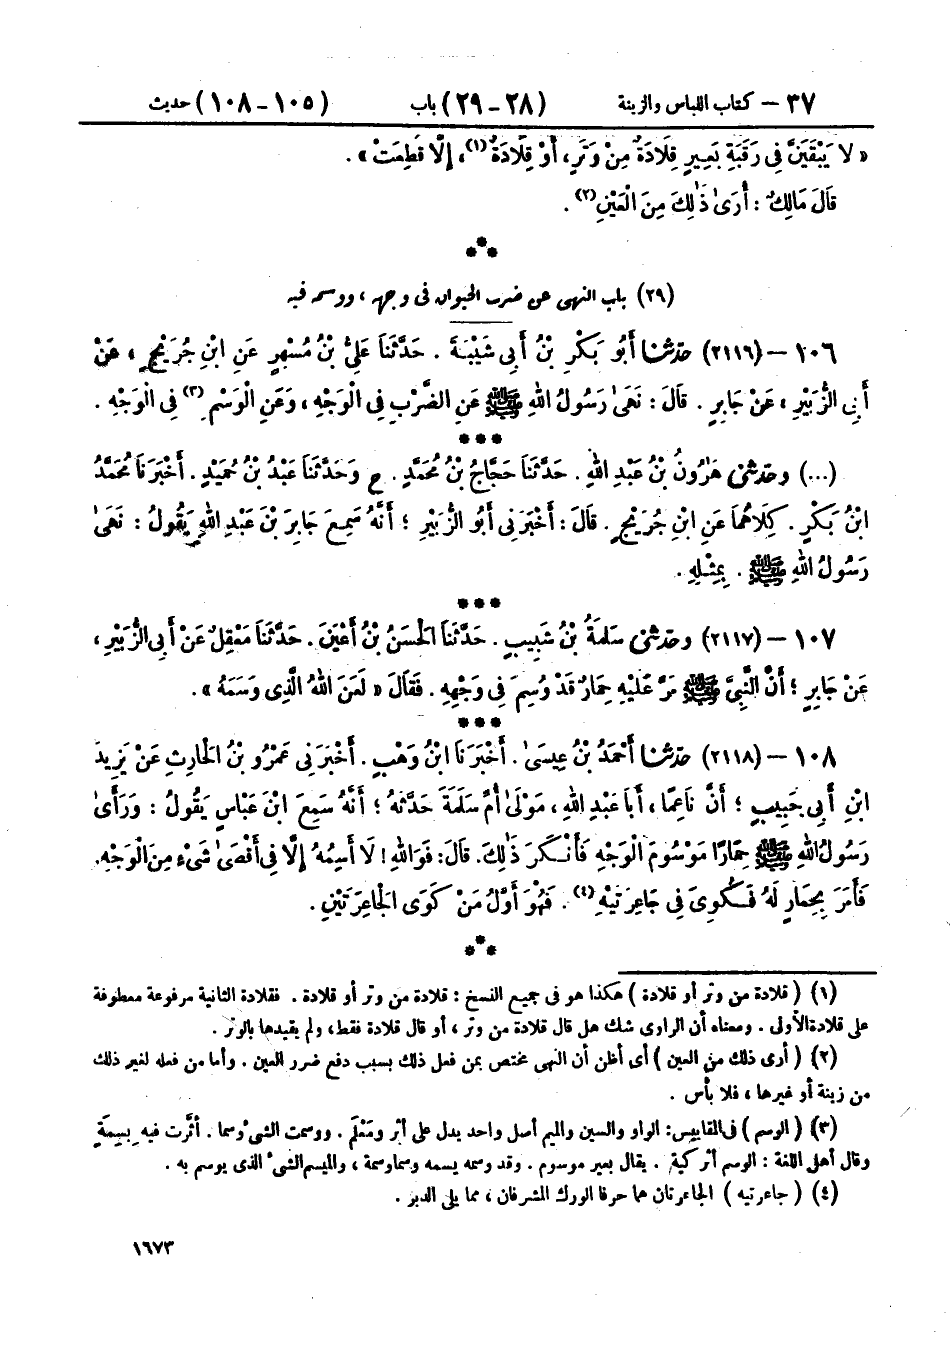 ٣٧ – كتاب اللباس والزينة (٢٨ - ٢٩) باب (١٠٥ - ١٠٨) حديث
« لَا يَبْقَيَنَّ فِي رَقَبَةِ بَعِيرٍ قِلَادَةٌ مِنْ وَتَرٍ، أَوْ قِلَادَةٌ(١)، إِلَّا قُطِعَتْ » .
قَالَ مَالِكٌ : أُرَىٰ ذَٰلِكَ مِنَ الْعَيْنِ(٢) .
***
(٢٩) باب النهى عن ضرب الحيوان فى وجهه ، ووسمه فيه
١٠٦ – (٢١١٦) حَدَّثَنَا أَبُو بَكْرِ بْنُ أَبِي شَيْبَةَ . حَدَّثَنَا عَلِيُّ بْنُ مُسْهِرٍ عَنِ ابْنِ جُرَيْجٍ ، عَنْ
أَبِي الزُّبَيْرِ ، عَنْ جَابِرٍ . قَالَ : نَهَىٰ رَسُولُ اللهِ ﷺ عَنِ الضَّرْبِ فِي الْوَجْهِ ، وَعَنِ الْوَسْمِ (٣) فِي الْوَجْهِ .
***
(...) وحَدَّثَنِي هَٰرُونُ بْنُ عَبْدِ اللهِ . حَدَّثَنَا حَجَّاجُ بْنُ مُحَمَّدٍ . ح وَحَدَّثَنَا عَبْدُ بْنُ حُمَيْدٍ . أَخْبَرَنَا مُحَمَّدُ
ابْنُ بَكْرٍ . كِلَاهُمَا عَنِ ابْنِ جُرَيْجٍ . قَالَ : أَخْبَرَنِي أَبُو الزُّبَيْرِ ؛ أَنَّهُ سَمِعَ جَابِرَ بْنَ عَبْدِ اللهِ يَقُولُ : نَهَىٰ
رَسُولُ اللهِ ﷺ . بِمِثْلِهِ .
***
١٠٧ – (٢١١٧) وحَدَّثَنِي سَلَمَةُ بْنُ شَبِيبٍ . حَدَّثَنَا الْحَسَنُ بْنُ أَعْيَنَ . حَدَّثَنَا مَعْقِلٌ عَنْ أَبِي الزُّبَيْرِ ،
عَنْ جَابِرٍ ؛ أَنَّ النَّبِيَّ ﷺ مَرَّ عَلَيْهِ حِمَارٌ قَدْ وُسِمَ فِي وَجْهِهِ . فَقَالَ « لَعَنَ اللهُ الَّذِي وَسَمَهُ » .
***
١٠٨ – (٢١١٨) حَدَّثَنَا أَحْمَدُ بْنُ عِيسَىٰ . أَخْبَرَنَا ابْنُ وَهْبٍ . أَخْبَرَنِي عَمْرُو بْنُ الْحَارِثِ عَنْ يَزِيدَ
ابْنِ أَبِي حَبِيبٍ ؛ أَنَّ نَاعِمًا ، أَبَا عَبْدِ اللهِ ، مَوْلَىٰ أُمِّ سَلَمَةَ حَدَّثَهُ ؛ أَنَّهُ سَمِعَ ابْنَ عَبَّاسٍ يَقُولُ : وَرَأَىٰ
رَسُولُ اللهِ ﷺ حِمَارًا مَوْسُومَ الْوَجْهِ فَأَنْكَرَ ذَٰلِكَ. قَالَ: فَوَاللهِ ! لَا أَسِمُهُ إِلَّا فِي أَقْصَىٰ شَيْءٍ مِنَ الْوَجْهِ.
فَأَمَرَ بِحِمَارٍ لَهُ فَكُوِىَ فِي جَاعِرَتَيْهِ(٤) . فَهُوَ أَوَّلُ مَنْ كَوَى الْجَاعِرَتَيْنِ .
***
(١) ( قلادة من وتر أو قلادة ) هكذا هو فى جميع النسخ : قلادة من وتر أو قلادة . فقلادة الثانية مرفوعة معطوفة
على قلادة الأولى . ومعناه أن الراوى شك هل قال قلادة من وتر ، أو قال قلادة فقط، ولم يقيدها بالوتر .
(٢) ( أرى ذلك من العين ) أى أظن أن النهى مختص بمن فعل ذلك بسبب دفع ضرر العين . وأما من فعله لغير ذلك
من زينة أو غيرها ، فلا بأس .
(٣) ( الوسم ) فى المقاييس: الواو والسين والميم أصل واحد يدل على أثر ومَعْلَم . ووسمت الشىء وسما . أثّرت فيه بِسِمَةٍ
وقال أهل اللغة : الوسم أثر كية . يقال بعير موسوم . وقد وسمه يسمه وسما وسمة ، والميسم الشىء الذى يوسم به .
(٤) ( جاعرتيه ) الجاعرتان هما حرفا الورك المشرفان ، مما يلى الدبر .
١٦٧٣